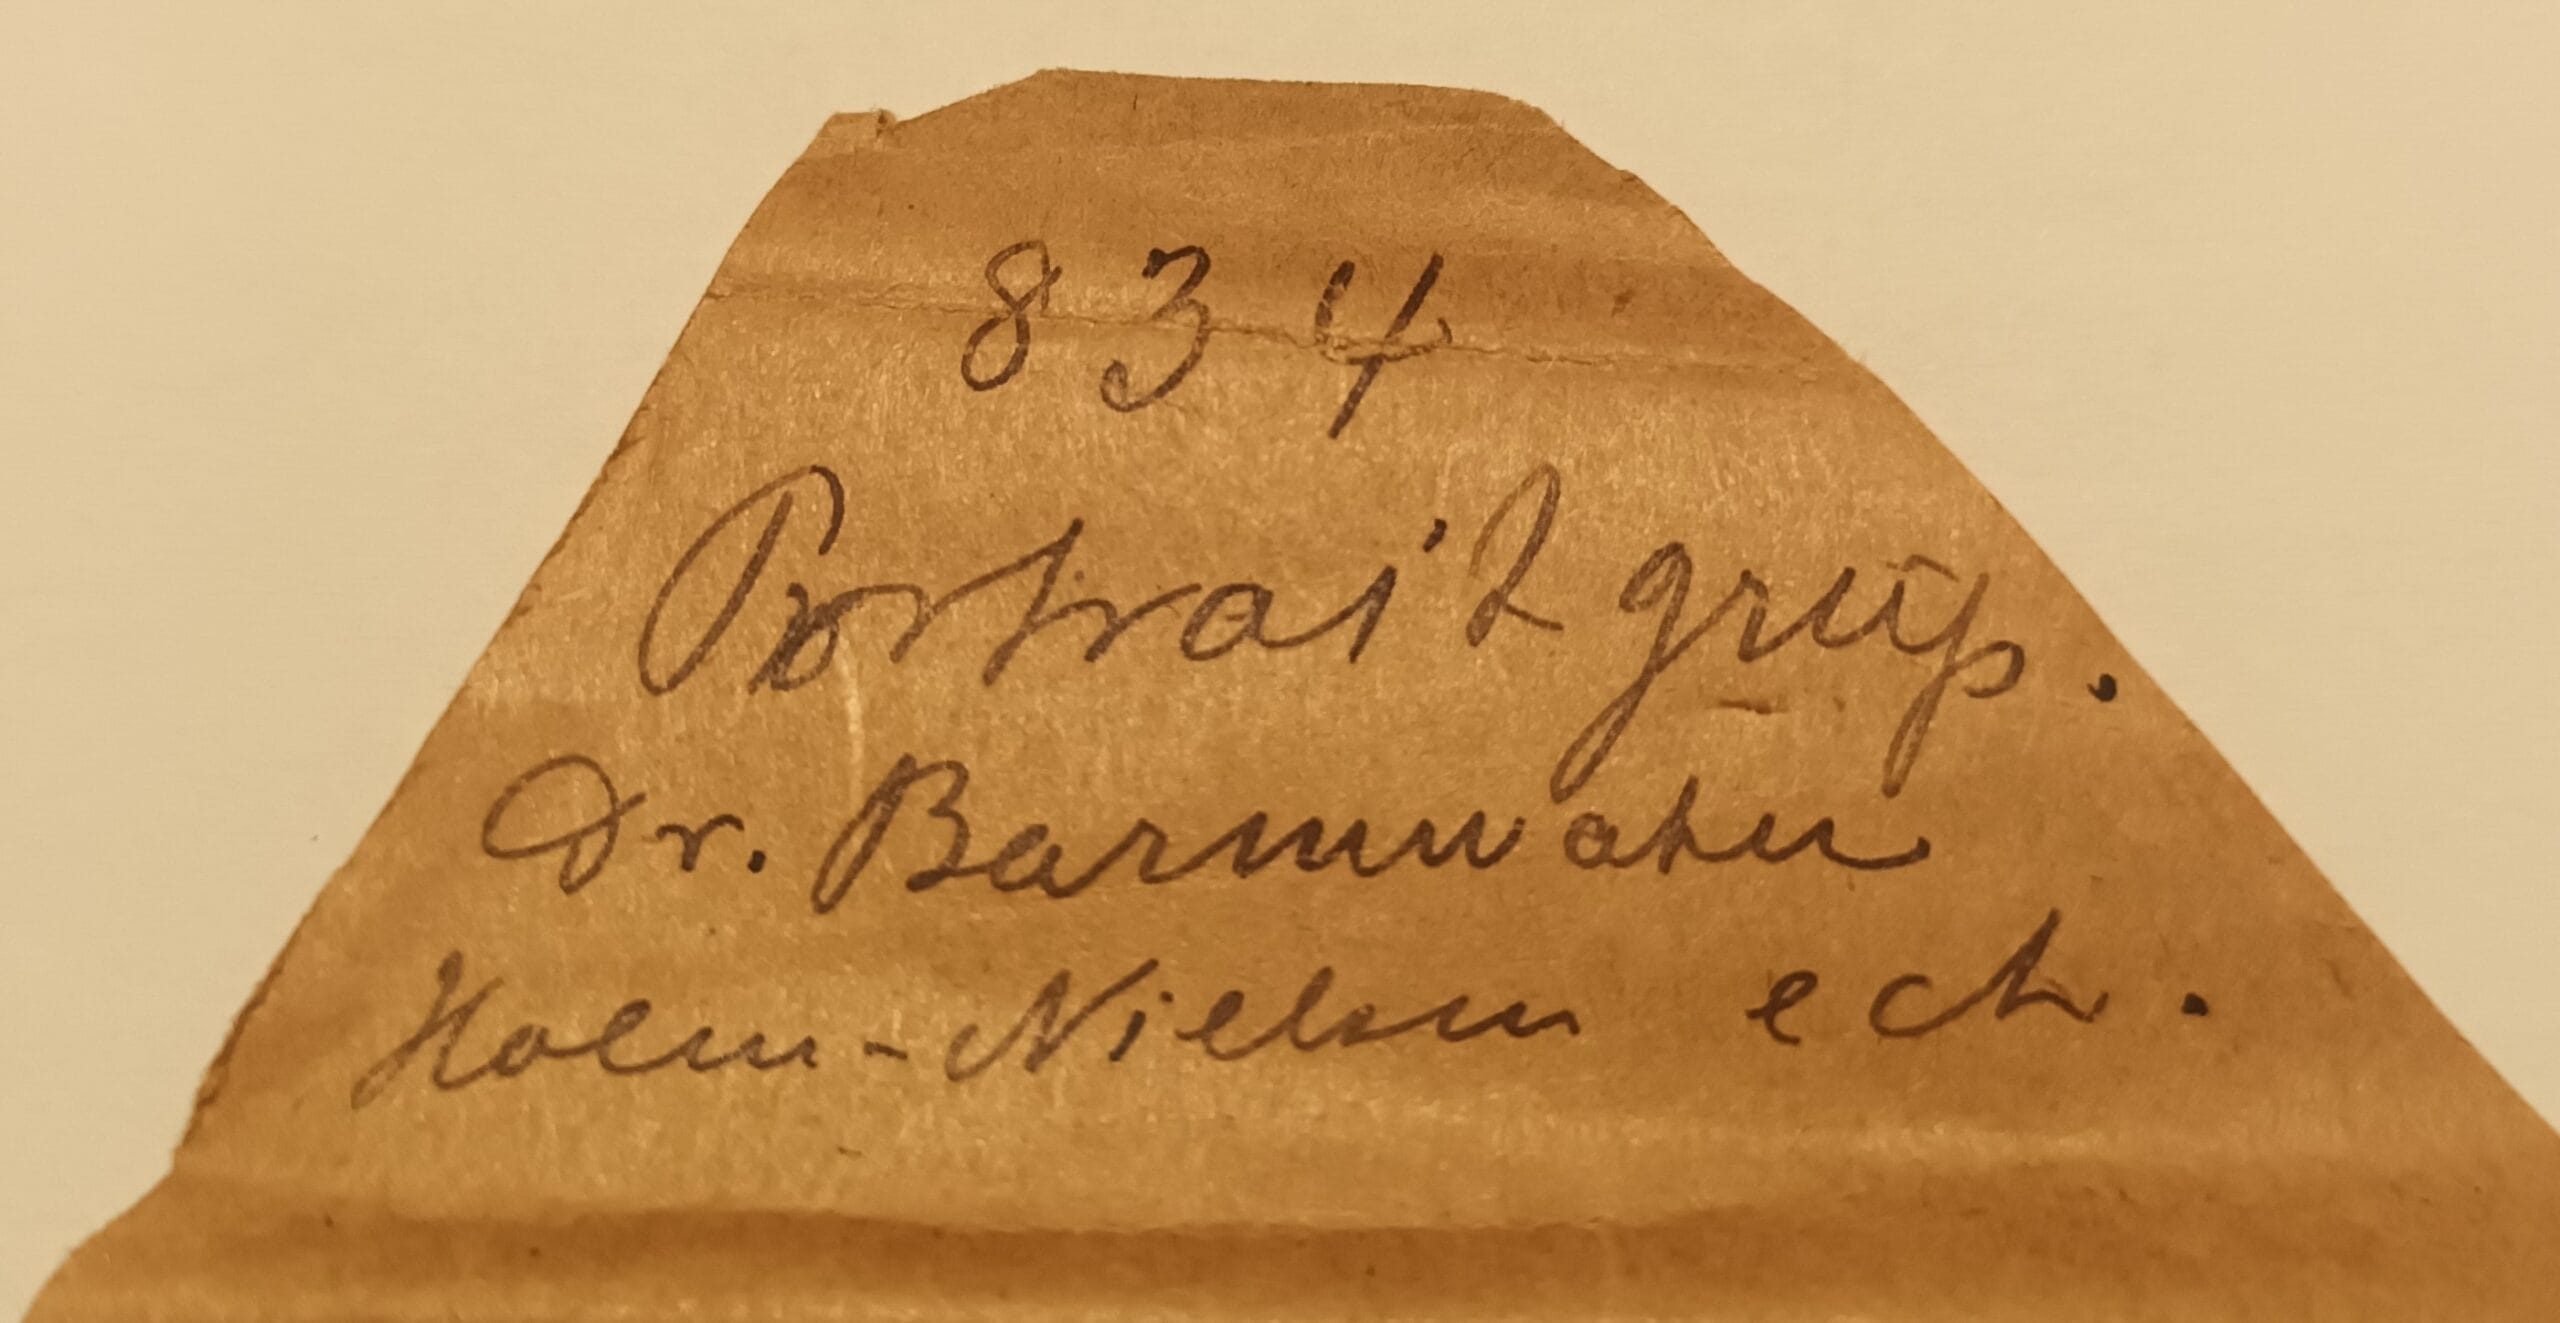 834
Portrait grup.
Dr. Barnwater
Holm-Nielsen ect.